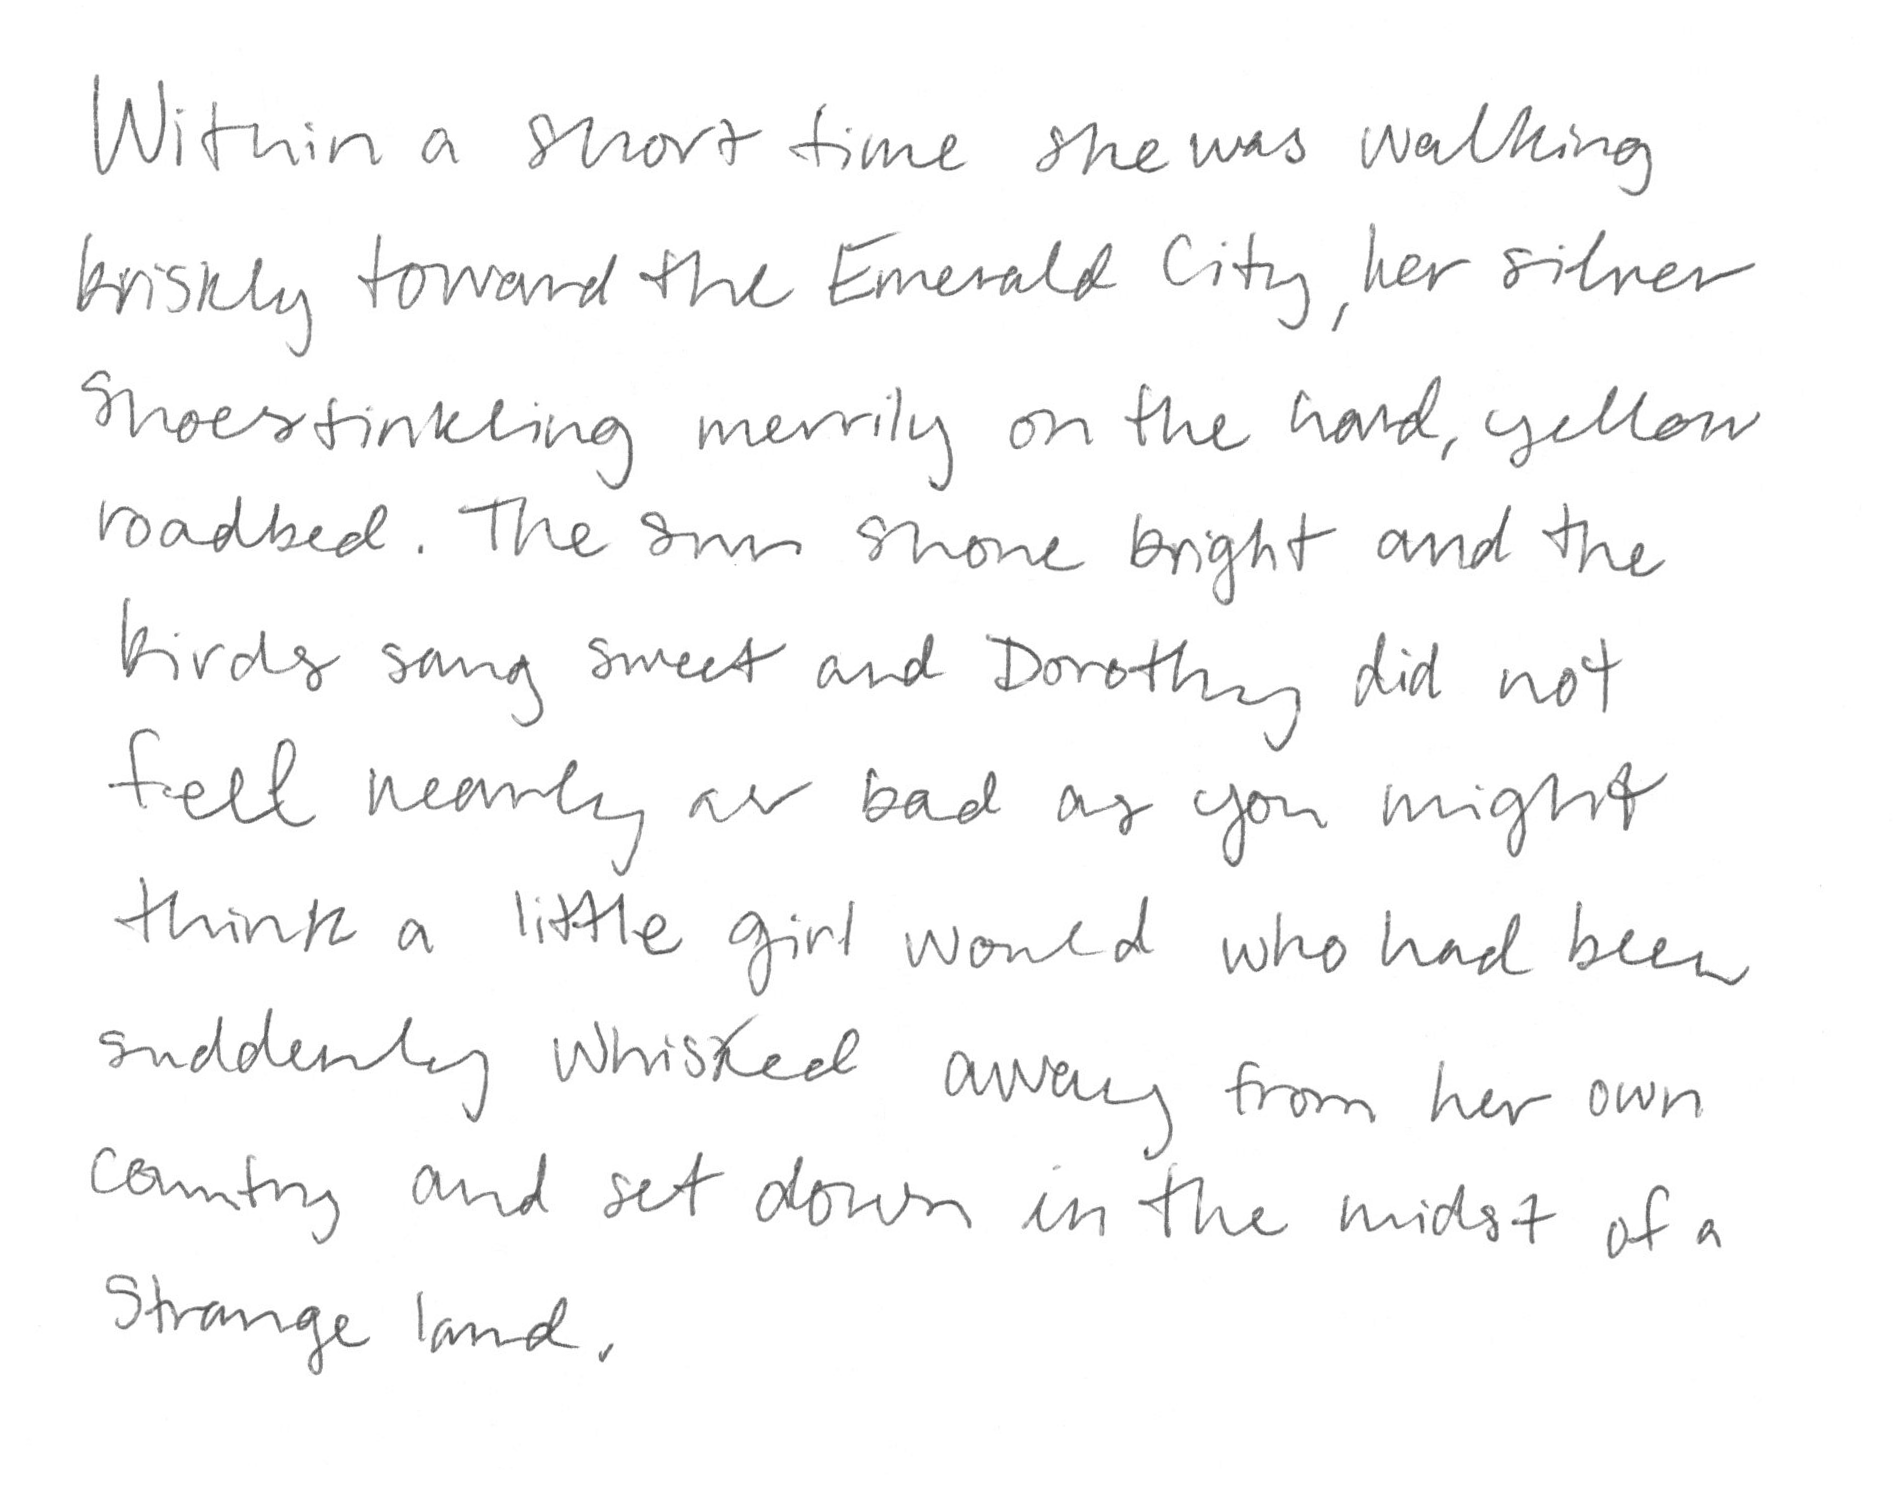 Within a short time she was walking
briskly toward the Emerald City, her silver
shoes tinkling merrily on the hard, yellow
roadbed. The sun shone bright and the
birds sang sweet and Dorothy did not
feel nearly as bad as you might
think a little girl would who had been
suddenly whisked away from her own
country and set down in the midst of a
strange land.